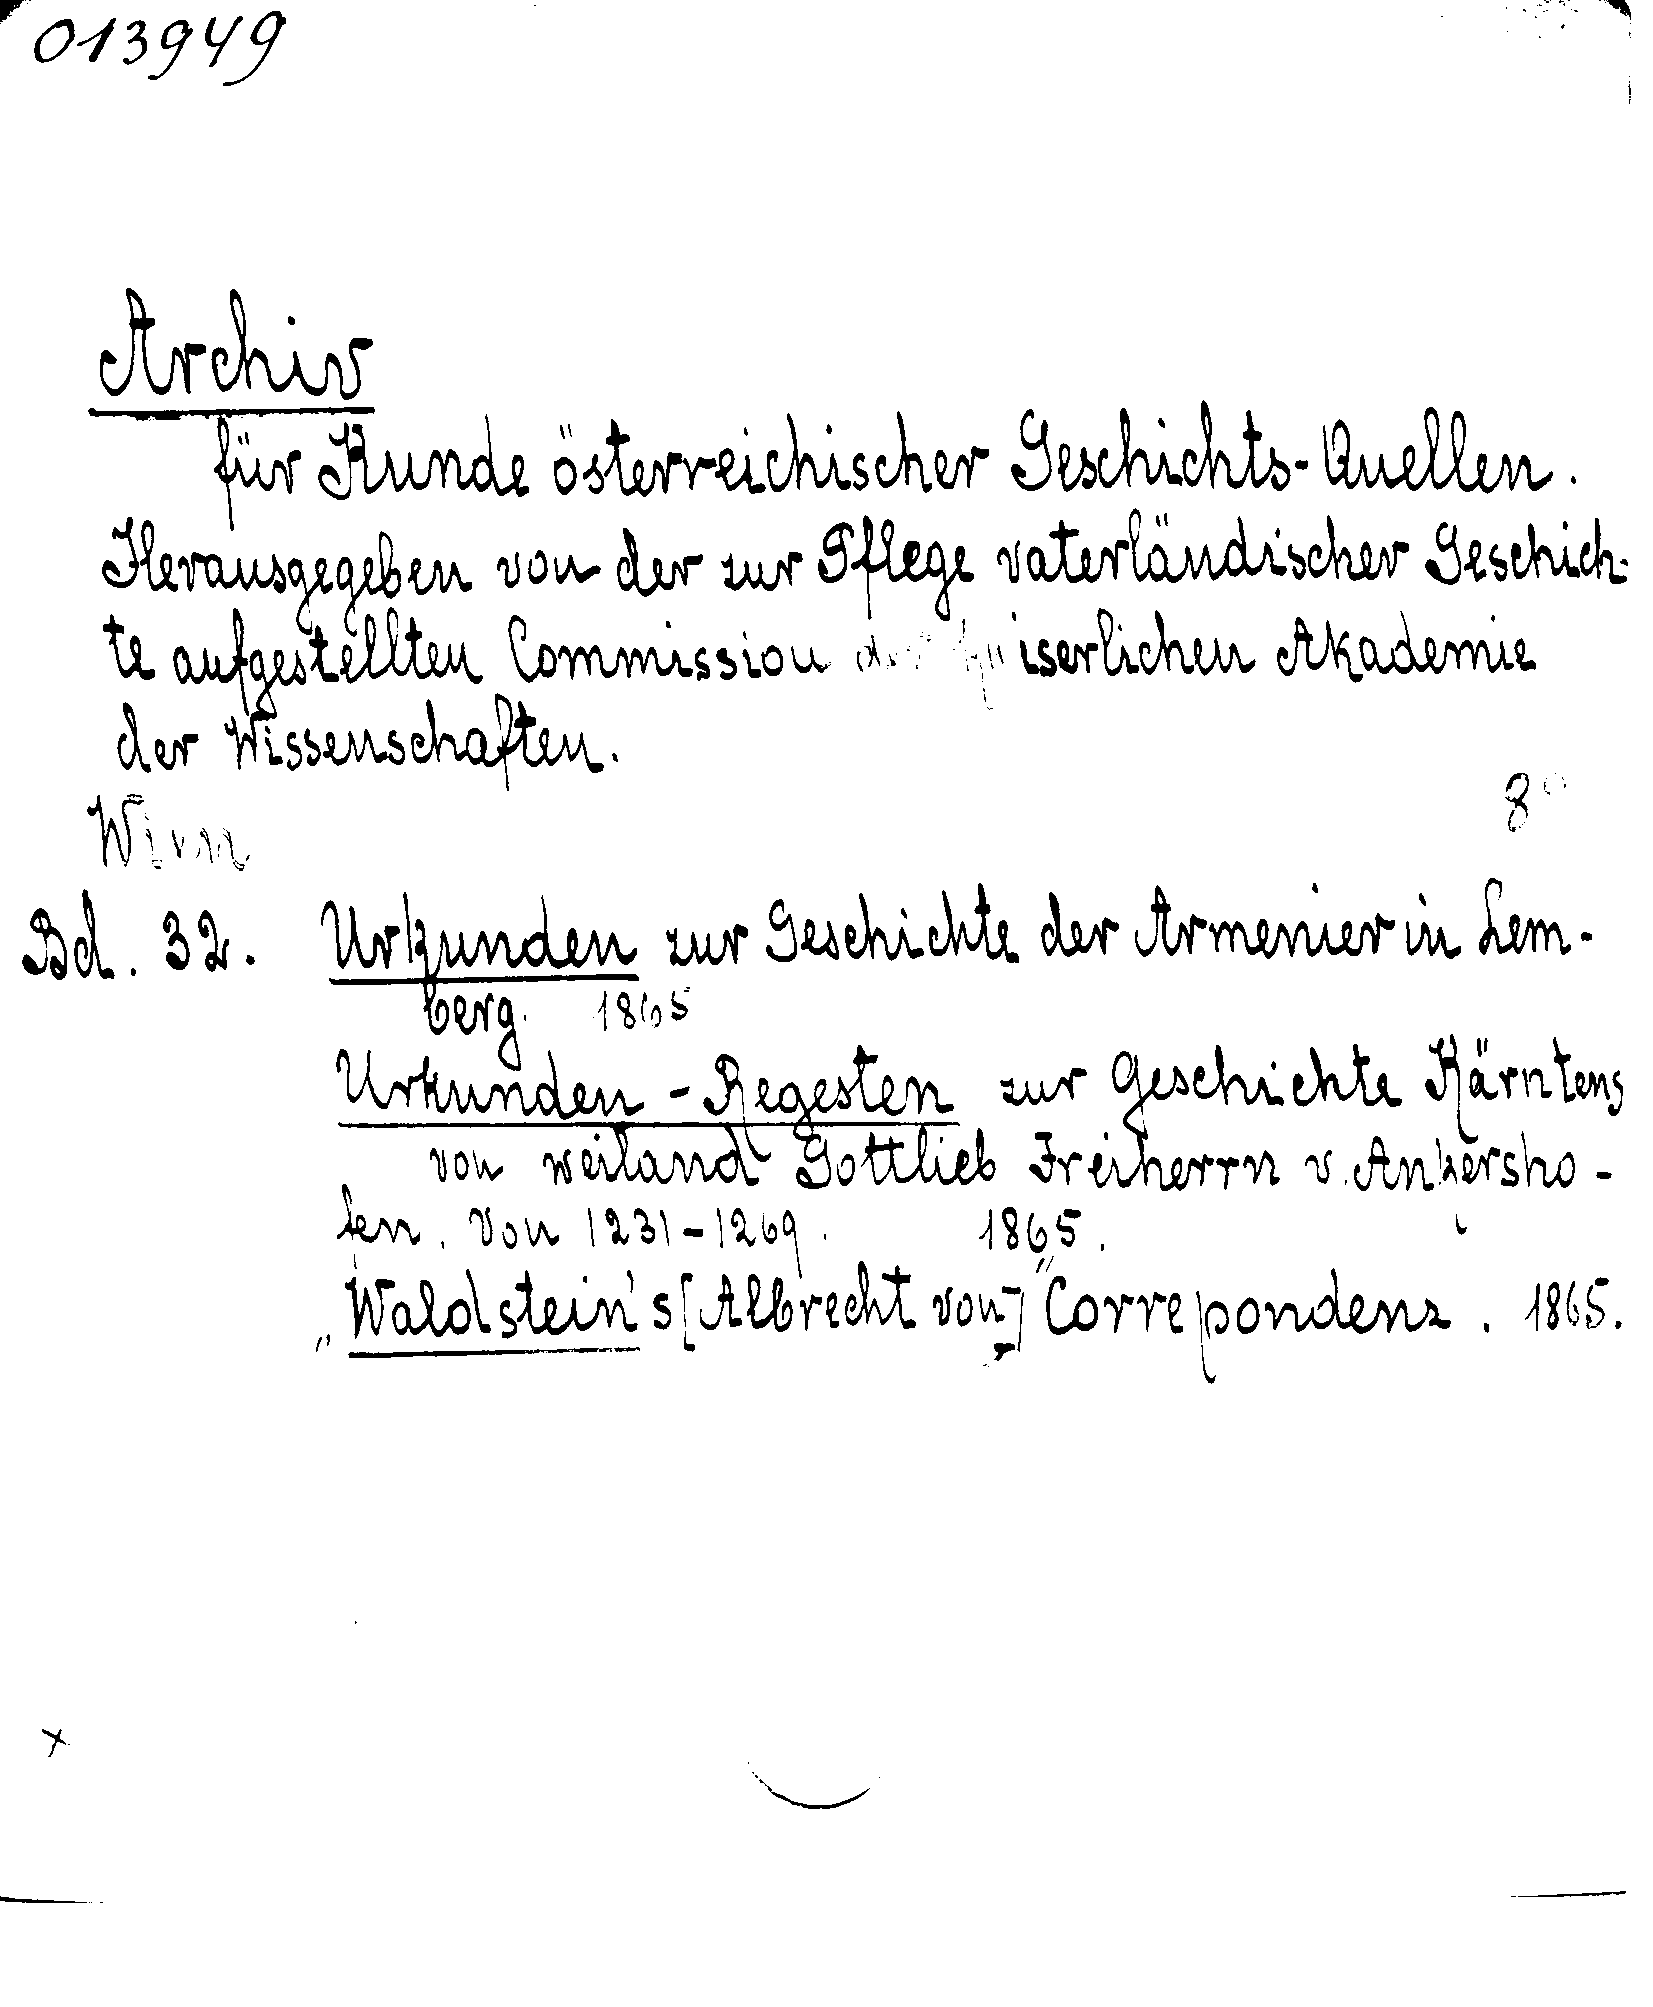 013949
Archiv
für Kunde österreichischer Geschichts-Quellen.
Herausgegeben von der zur Pflege vaterländischer Geschich-
te aufgestellten Commission der kaiserlichen Akademie
der Wissenschaften.
Wien 8°
Bd. 32. Urkunden zur Geschichte der Armenier in Lem-
berg. 1865
Urkunden-Regesten zur Geschichte Kärntens
von weiland Gottlieb Freiherrn v. Ankersho-
fen. Von 1231-1269. 1865.
„Waldstein's [Albrecht von] "Correpondenz. 1865.
x